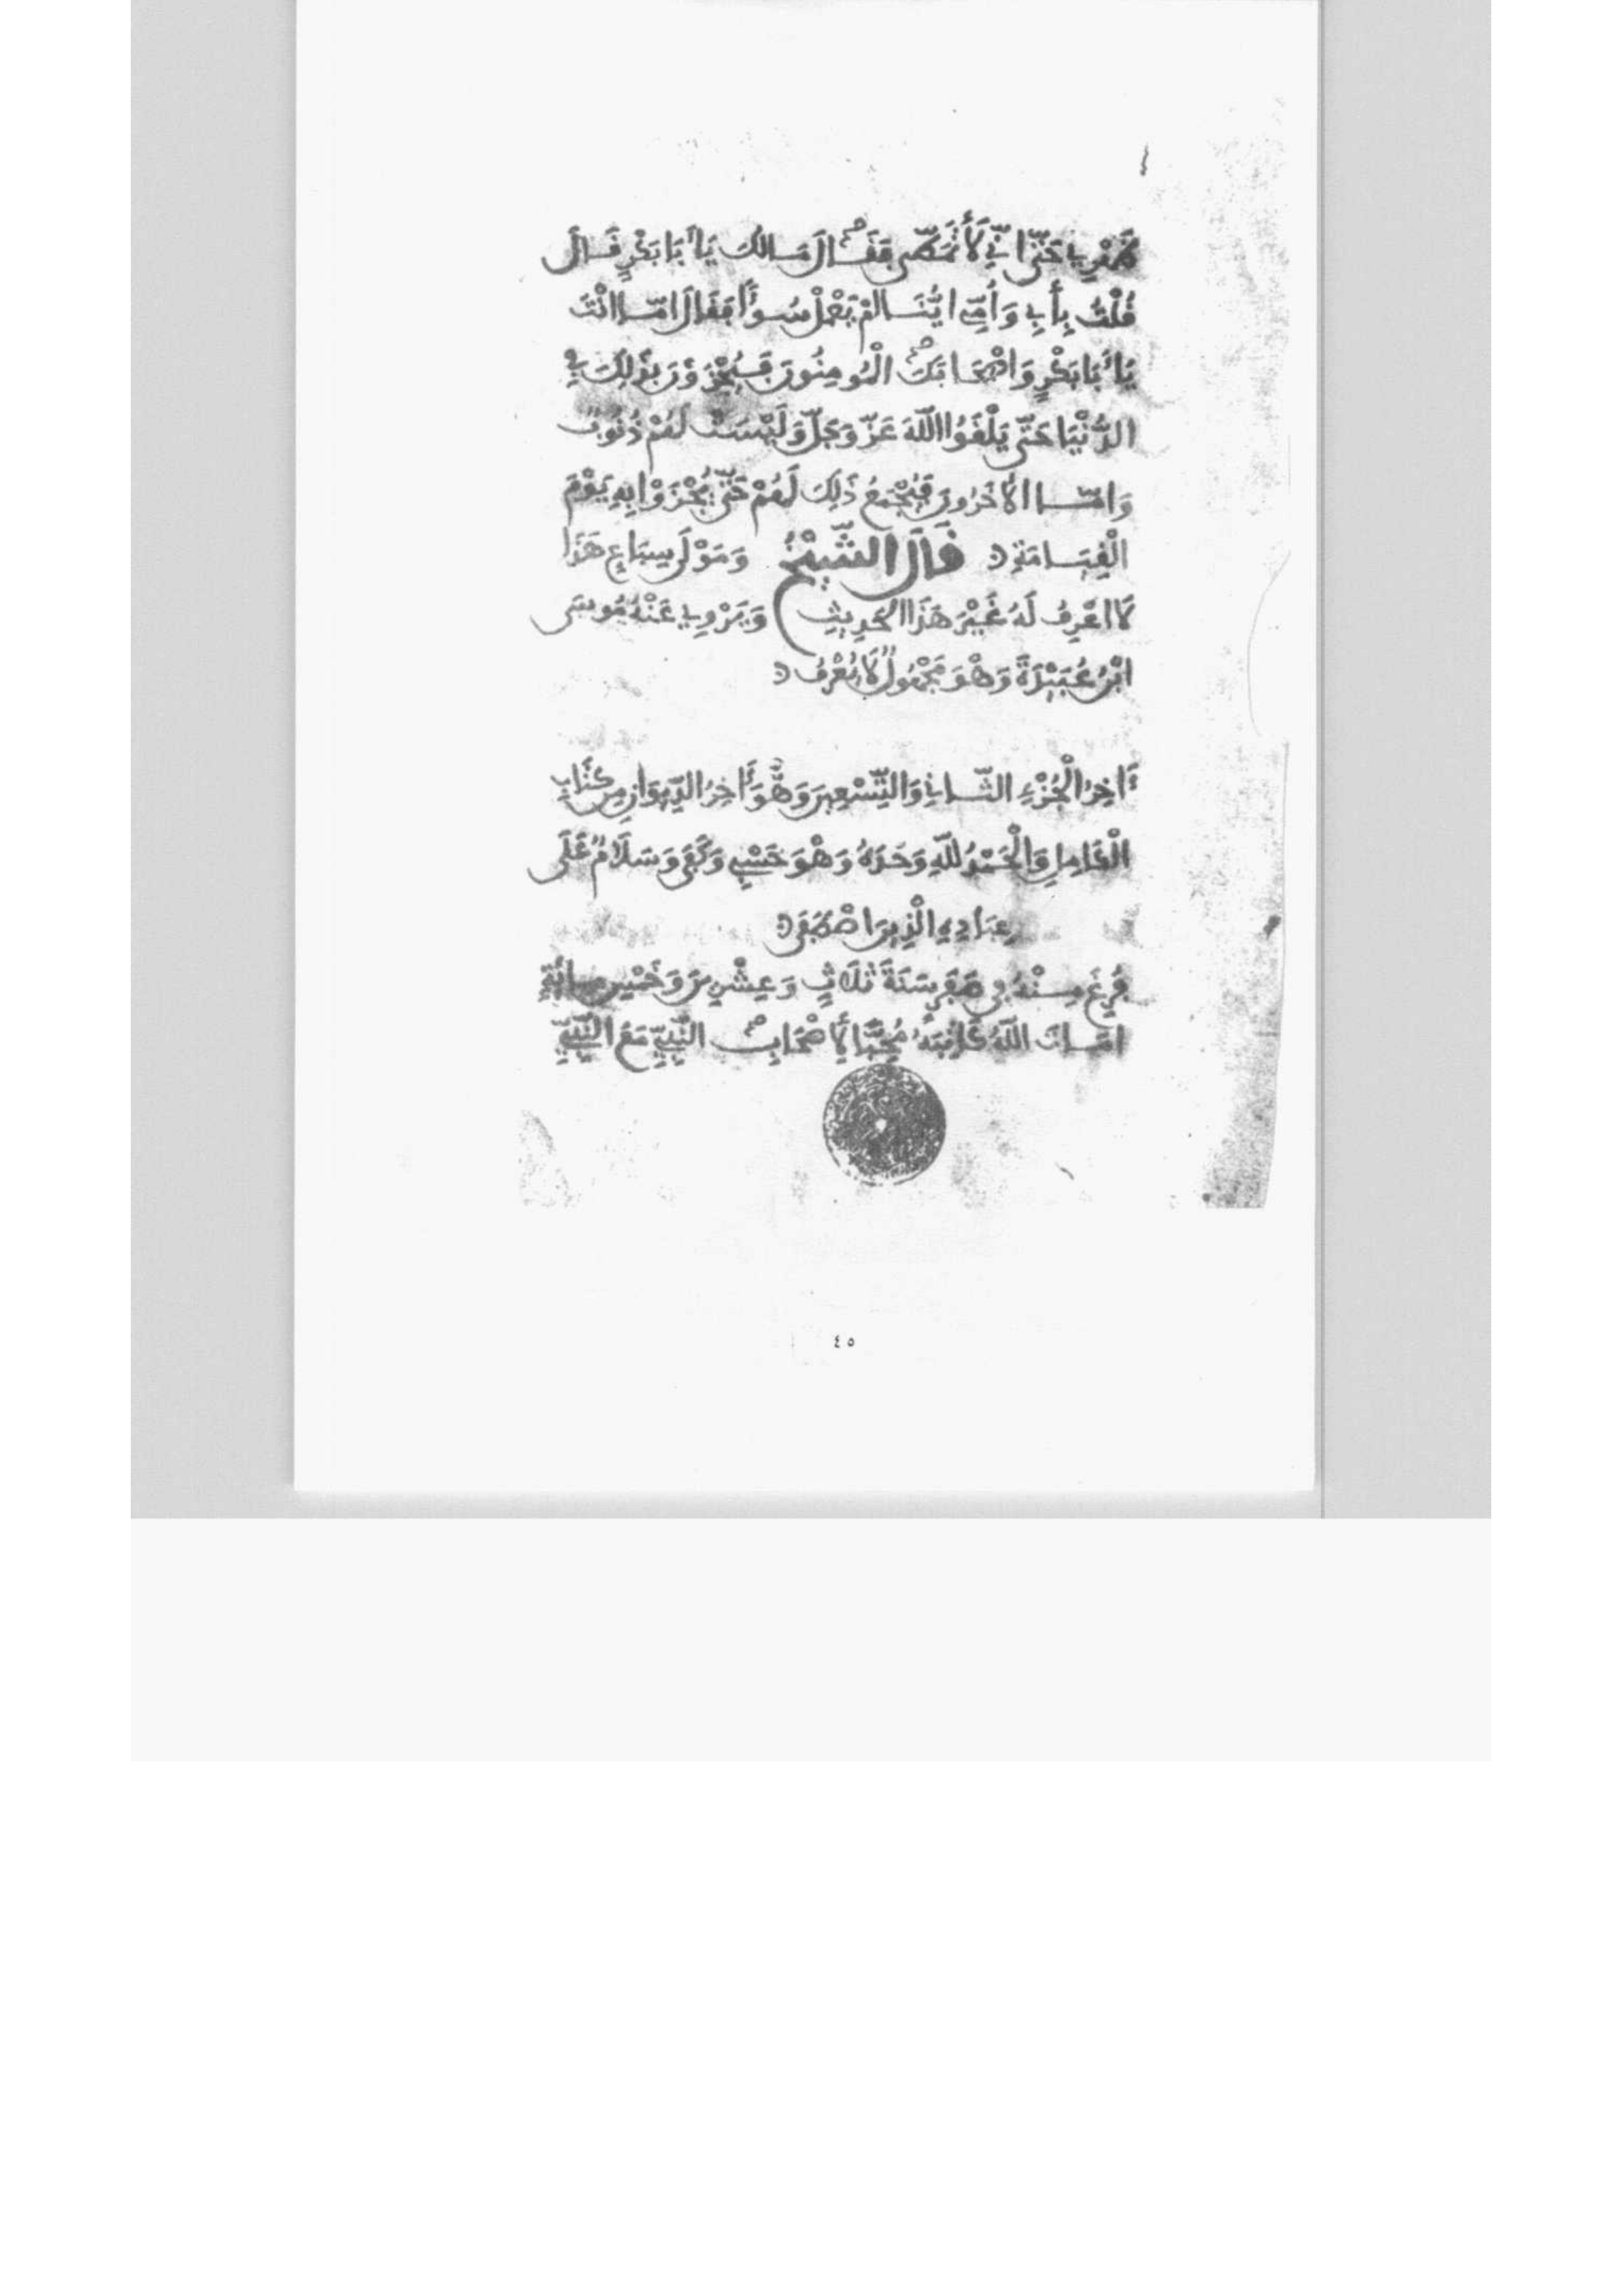 ظَهْرِي حَتَّى إِنِّي لَأَتَمَطَّى فَقَالَ مَا لَكَ يَا أَبَا بَكْرٍ قَالَ
قُلْتُ بِأَبِي وَأُمِّي أَيُّنَا لَمْ يَعْمَلْ سُوءًا فَقَالَ أَمَّا أَنْتَ
يَا أَبَا بَكْرٍ وَأَصْحَابَكَ الْمُومِنُونَ فَيُجْزَوْنَ بِذَلِكَ فِي
الدُّنْيَا حَتَّى يَلْقَوُا اللَّهَ عَزَّ وَجَلَّ وَلَيْسَتْ لَهُمْ ذُنُوبٌ
وَأَمَّا الْآخَرُونَ فَيُجْمَعُ ذَلِكَ لَهُمْ حَتَّى يُجْزَوْا بِهِ يَوْمَ
الْقِيَامَةِ قَالَ الشَّيْخُ وَمَوْلَى سِبَاعٍ هَذَا
لَا أَعْرِفُ لَهُ غَيْرَ هَذَا الْحَدِيثِ وَيَرْوِي عَنْهُ مُوسَى
ابْنُ عُبَيْدَةَ وَهْوَ مَجْهُولٌ لَا يُعْرَفُ
آخِرُ الْجُزْءِ الثَّانِي وَالتِّسْعِينَ وَهُوَ آخِرُ الدِّيوَانِ مِنْ كِتَابِ
الْكَامِلِ وَالْحَمْدُ لِلَّهِ وَحْدَهُ وَهْوَ حَسْبِي وَكَفَى وَسَلَامٌ عَلَى
عِبَادِهِ الَّذِينَ اصْطَفَى
فُرِغَ مِنْهُ فِي صَفَرِ سَنَةَ ثَلَاثٍ وَعِشْرِينَ وَخَمْسِ مِائَةٍ
أَمَاتَ اللَّهُ كَاتِبَهُ مُحِبًّا لِأَصْحَابِ النَّبِيِّ مَعَ النَّبِيِّ
٤٥